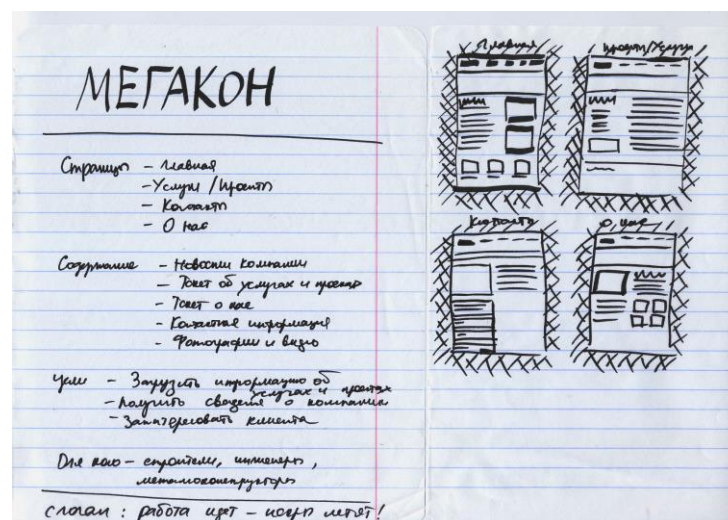 МЕГАКОН
Страницы - Главная
- Услуги / Проекты
- Контакты
- О нас
Содержание - Новости компании
- Текст об услугах и проектах
- Текст о нас
- Контактная информация
- Фотографии и видео
Цели - Загрузить информацию об услугах и проектах
- Получить сведения о компании
- Заинтересовать клиента
Для кого - строители, инженеры,
металлоконструкторы
слоган : работа идет - искры летят!
Главная
Проекты/Услуги
Контакты
О нас